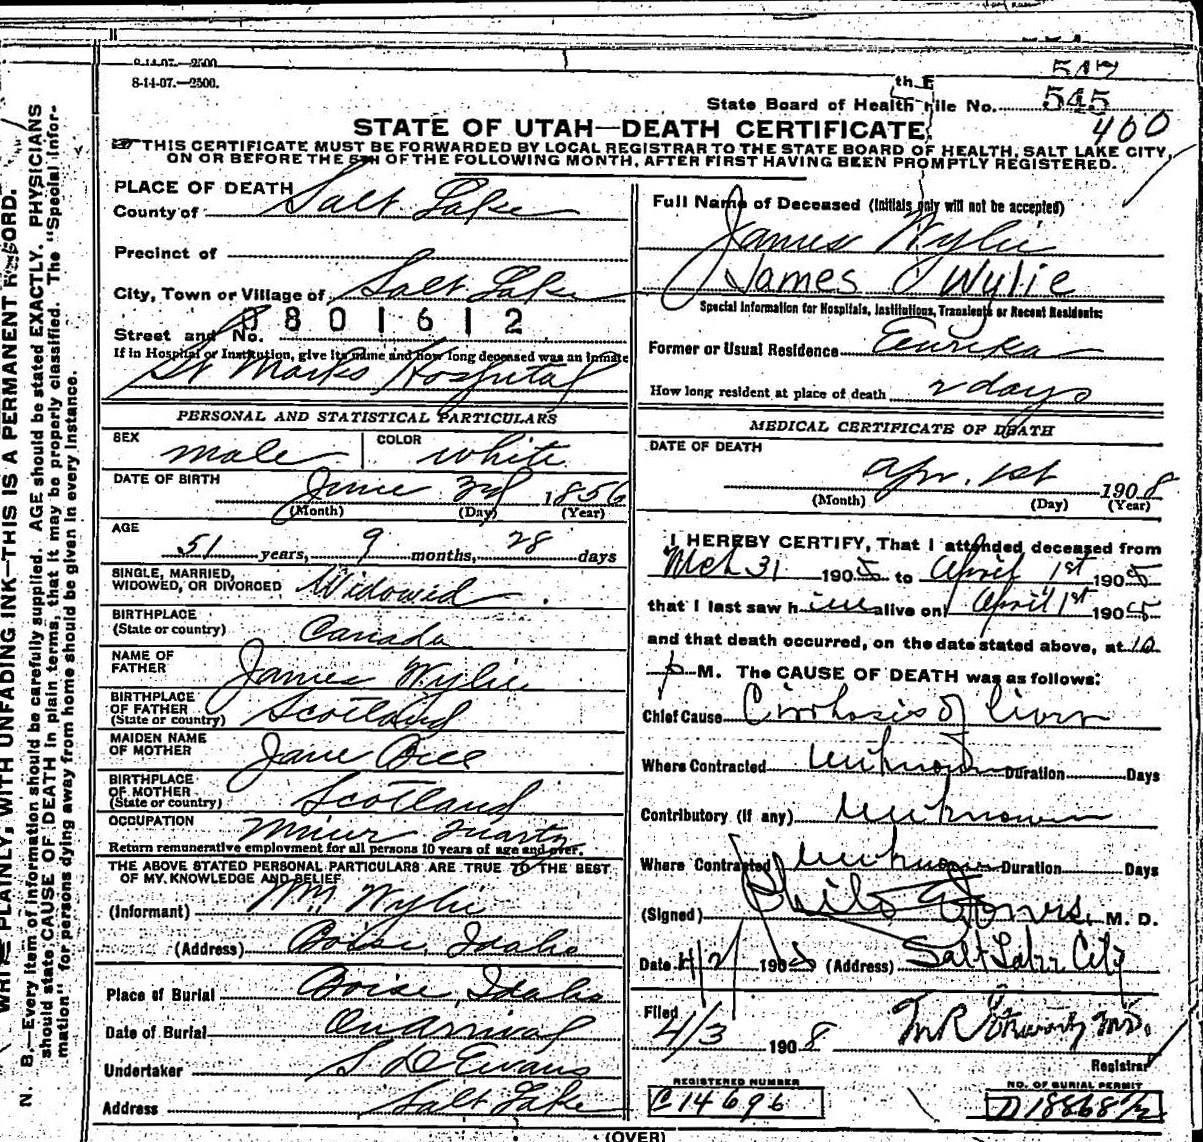 8-14-07.—2500.
8-14-07.—2500.
th E
517
State Board of Health File No. 545
400
STATE OF UTAH—DEATH CERTIFICATE
THIS CERTIFICATE MUST BE FORWARDED BY LOCAL REGISTRAR TO THE STATE BOARD OF HEALTH, SALT LAKE CITY,
ON OR BEFORE THE 5TH OF THE FOLLOWING MONTH, AFTER FIRST HAVING BEEN PROMPTLY REGISTERED.
PLACE OF DEATH
County of Salt Lake
Precinct of
City, Town or Village of Salt Lake
0801612
Street and No.
If in Hospital or Institution, give its name and how long deceased was an inmate
St Marks Hospital
PERSONAL AND STATISTICAL PARTICULARS
SEX male COLOR white
DATE OF BIRTH June 3rd 1856
(Month) (Day) (Year)
AGE
51 years, 9 months, 28 days
SINGLE, MARRIED,
WIDOWED, OR DIVORCED Widowed
BIRTHPLACE
(State or country) Canada
NAME OF
FATHER James Wylie
BIRTHPLACE
OF FATHER
(State or country) Scotland
MAIDEN NAME
OF MOTHER Jane
BIRTHPLACE
OF MOTHER
(State or country) Scotland
OCCUPATION Miner Quartz
Return remunerative employment for all persons 10 years of age and over.
THE ABOVE STATED PERSONAL PARTICULARS ARE TRUE TO THE BEST
OF MY KNOWLEDGE AND BELIEF
(Informant) Wylie
(Address) Boise, Idaho
Place of Burial Boise, Idaho
Date of Burial On Arrival
Undertaker S D Evans
Address Salt Lake
Full Name of Deceased (Initials only will not be accepted)
James Wylie
James Wylie
Special Information for Hospitals, Institutions, Transients or Recent Residents:
Former or Usual Residence Eureka
How long resident at place of death 2 days
MEDICAL CERTIFICATE OF DEATH
DATE OF DEATH
Apr. 1st 1908
(Month) (Day) (Year)
I HEREBY CERTIFY, That I attended deceased from
Mch 31 1908 to April 1st 1908
that I last saw him alive on April 1st 1908
and that death occurred, on the date stated above, at 10
p M. The CAUSE OF DEATH was as follows:
Chief Cause Cirrhosis of liver
Where Contracted unknown Duration Days
Contributory (if any) unknown
Where Contracted unknown Duration Days
(Signed) Philo Jones M. D.
Date 4/2/ 1908 (Address) Salt Lake City
Filed
4/3 1908 M.D.
Registrar
REGISTERED NUMBER
C 14696
NO. OF BURIAL PERMIT
D 18868 1/2
(OVER)
N. B.—Every item of information should be carefully supplied. AGE should be stated EXACTLY. PHYSICIANS
should state CAUSE OF DEATH in plain terms, that it may be properly classified. The "Special Infor-
mation" for persons dying away from home should be given in every instance.
WRITE PLAINLY, WITH UNFADING INK—THIS IS A PERMANENT RECORD.